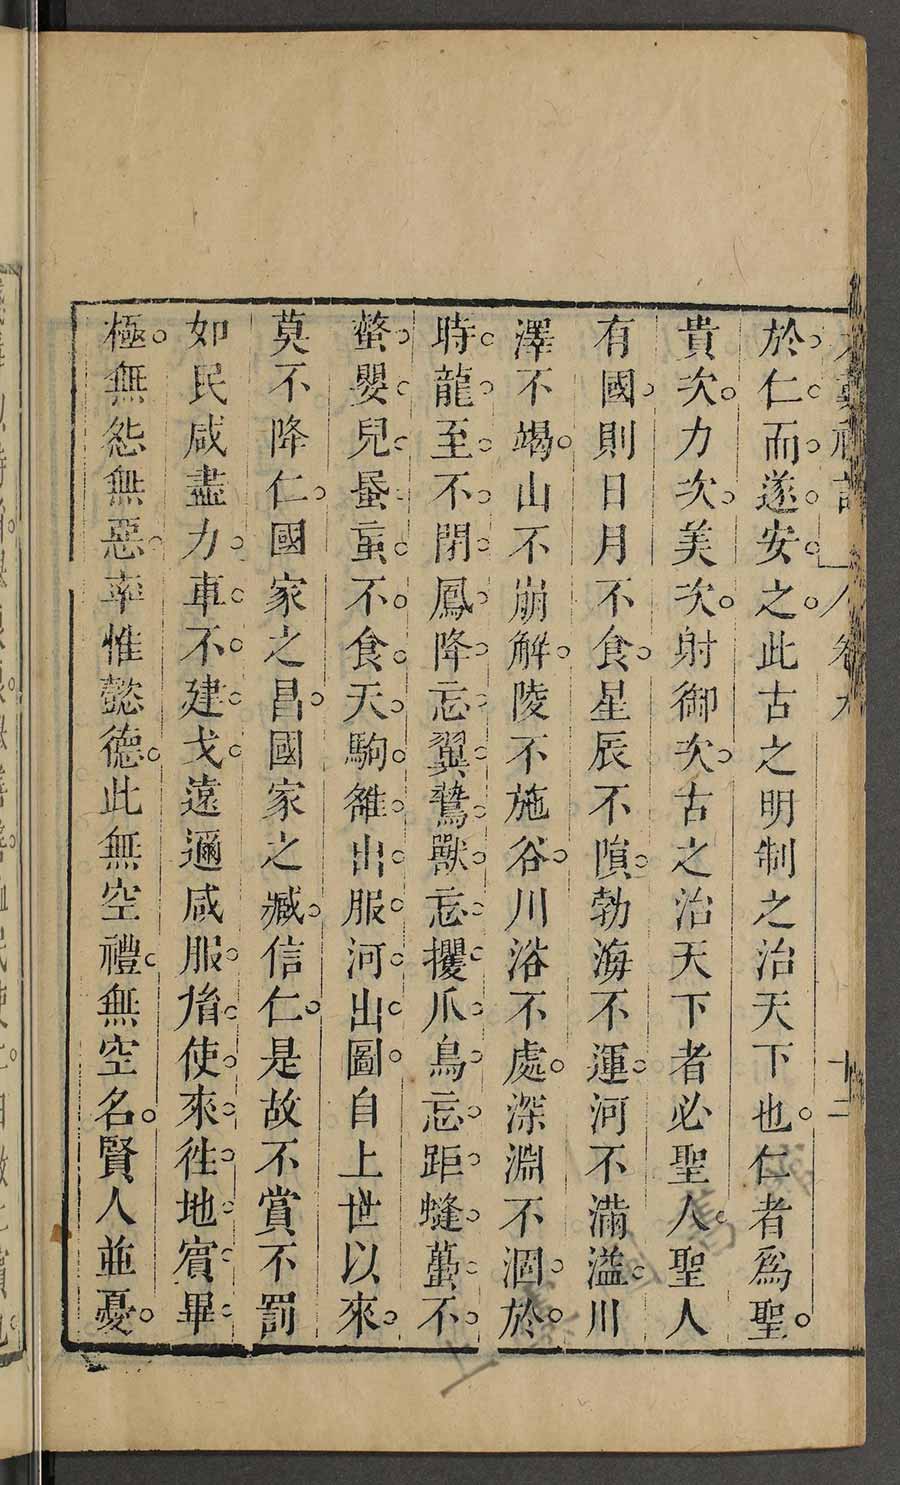 大戴禮記 卷九 十二
於仁而遂安之此古之明制之治天下也仁者爲聖
貴次力次美次射御次古之治天下者必聖人聖人
有國則日月不食星辰不隕勃海不運河不滿溢川
澤不竭山不崩解陵不施谷川浴不處深淵不涸於
時龍至不閉鳳降忘翼鷙獸忘攫爪鳥忘距䗬蠆不
螫嬰兒不食天駒雒出服河出圖自上世以來
莫不降仁國家之昌國家之臧信仁是故不賞不罰
如民咸盡力車不建戈遠邇咸服胤使來徃地賓畢
極無怨無惡率惟懿德此無空禮無空名賢人並憂